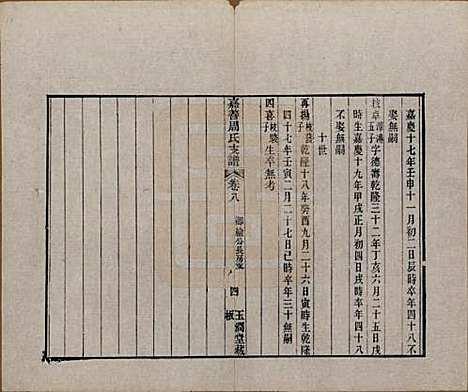 嘉慶十七年壬申十一月初二日辰時卒年四十八不
娶無嗣
五子字德壽乾隆三十二年丁亥六月二十五日戌
時生嘉慶十九年甲戌正月初四日戌時卒年四十八
不娶無嗣
十世
再揚子乾隆十八年癸酉九月二十六日寅時生乾隆
四十七年壬寅二月二十七日巳時卒年三十無嗣
四喜子生卒無考
嘉善周氏支譜
卷八
公長房
四
玉潤堂藏
板